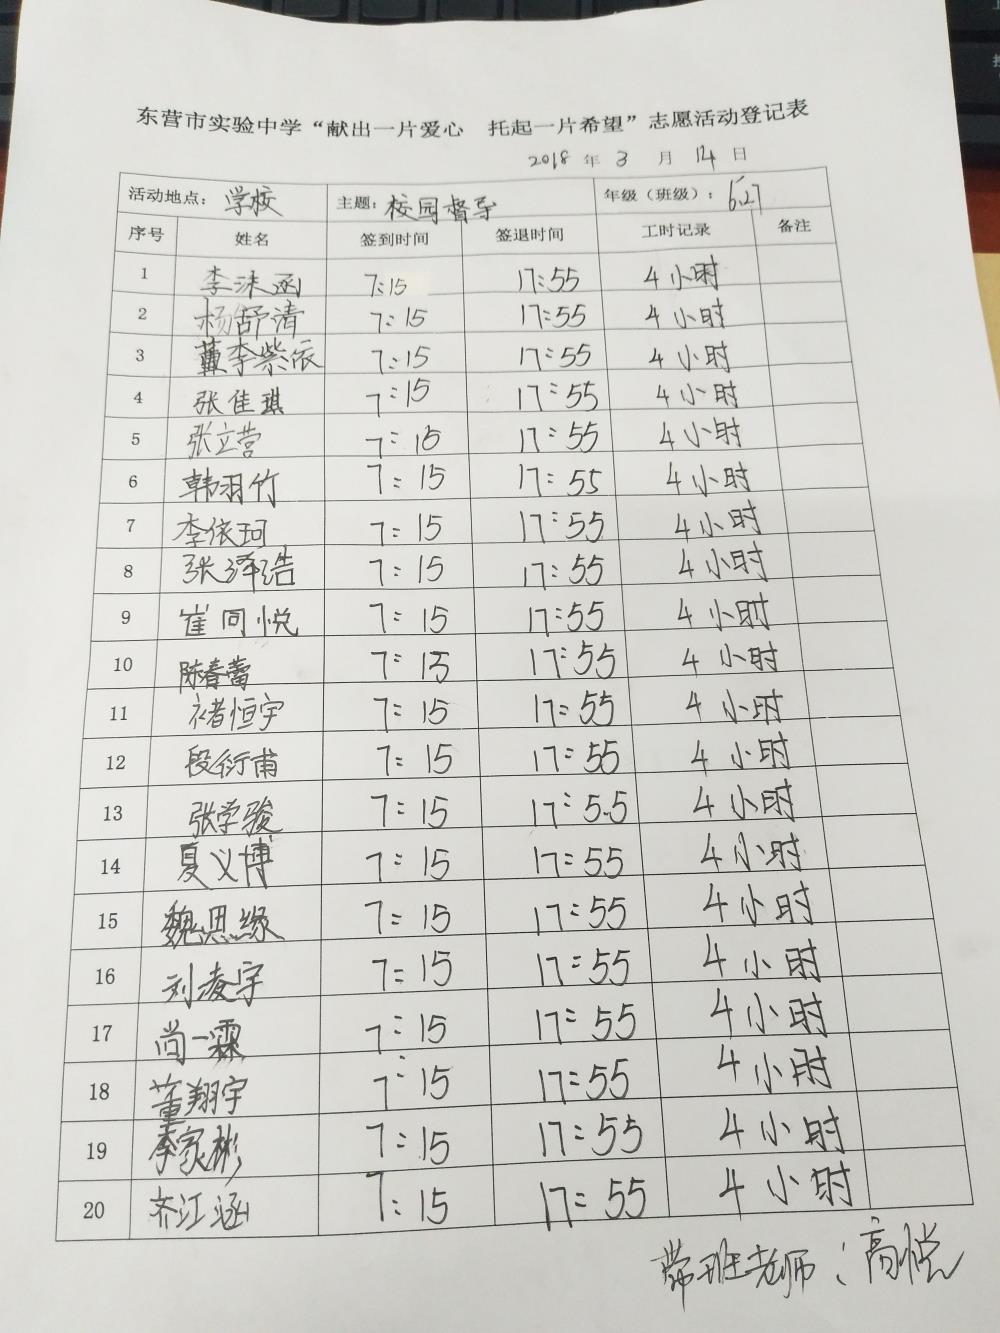 东营市实验中学“献出一片爱心 托起一片希望”志愿活动登记表
2018 年 3 月 14 日
活动地点： 学校 主题： 校园督导 年级（班级）： 6.27
序号 姓名 签到时间 签退时间 工时记录 备注
1 李沫函 7:15 17:55 4小时
2 杨舒清 7:15 17:55 4小时
3 董李紫依 7:15 17:55 4小时
4 张佳琪 7:15 17:55 4小时
5 张立营 7:15 17:55 4小时
6 韩羽竹 7:15 17:55 4小时
7 李依珂 7:15 17:55 4小时
8 张泽浩 7:15 17:55 4小时
9 崔同悦 7:15 17:55 4小时
10 陈春蕾 7:15 17:55 4小时
11 褚恒宇 7:15 17:55 4小时
12 段衍甫 7:15 17:55 4小时
13 张学骏 7:15 17:55 4小时
14 夏义博 7:15 17:55 4小时
15 魏思缘 7:15 17:55 4小时
16 刘凌宇 7:15 17:55 4小时
17 尚一霖 7:15 17:55 4小时
18 董翔宇 7:15 17:55 4小时
19 李家彬 7:15 17:55 4小时
20 齐江涵 7:15 17:55 4小时
带班老师：高悦